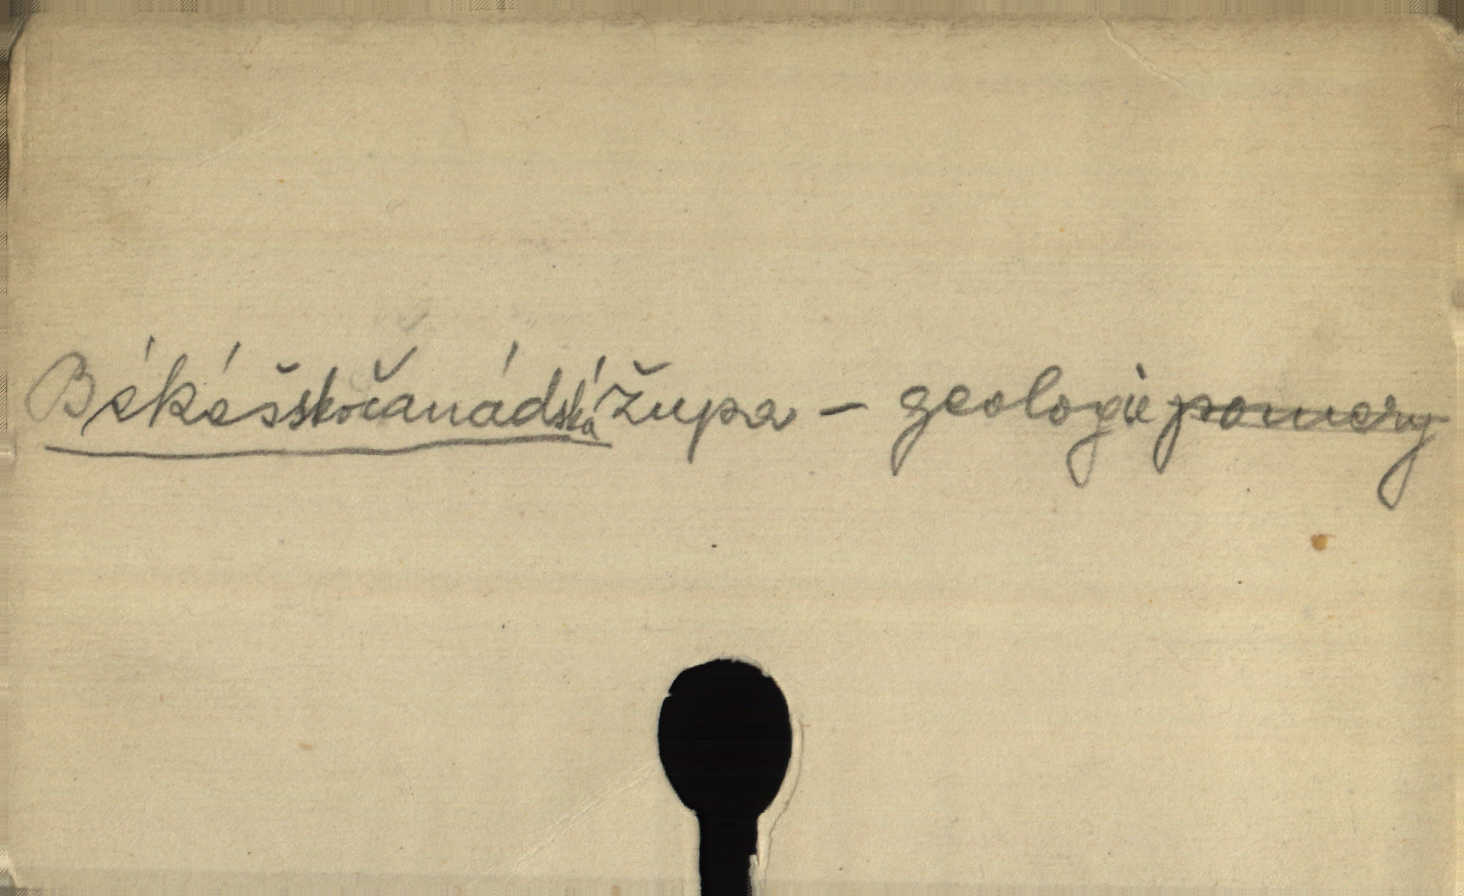 Békéšskočanádská župa – geologie pomery